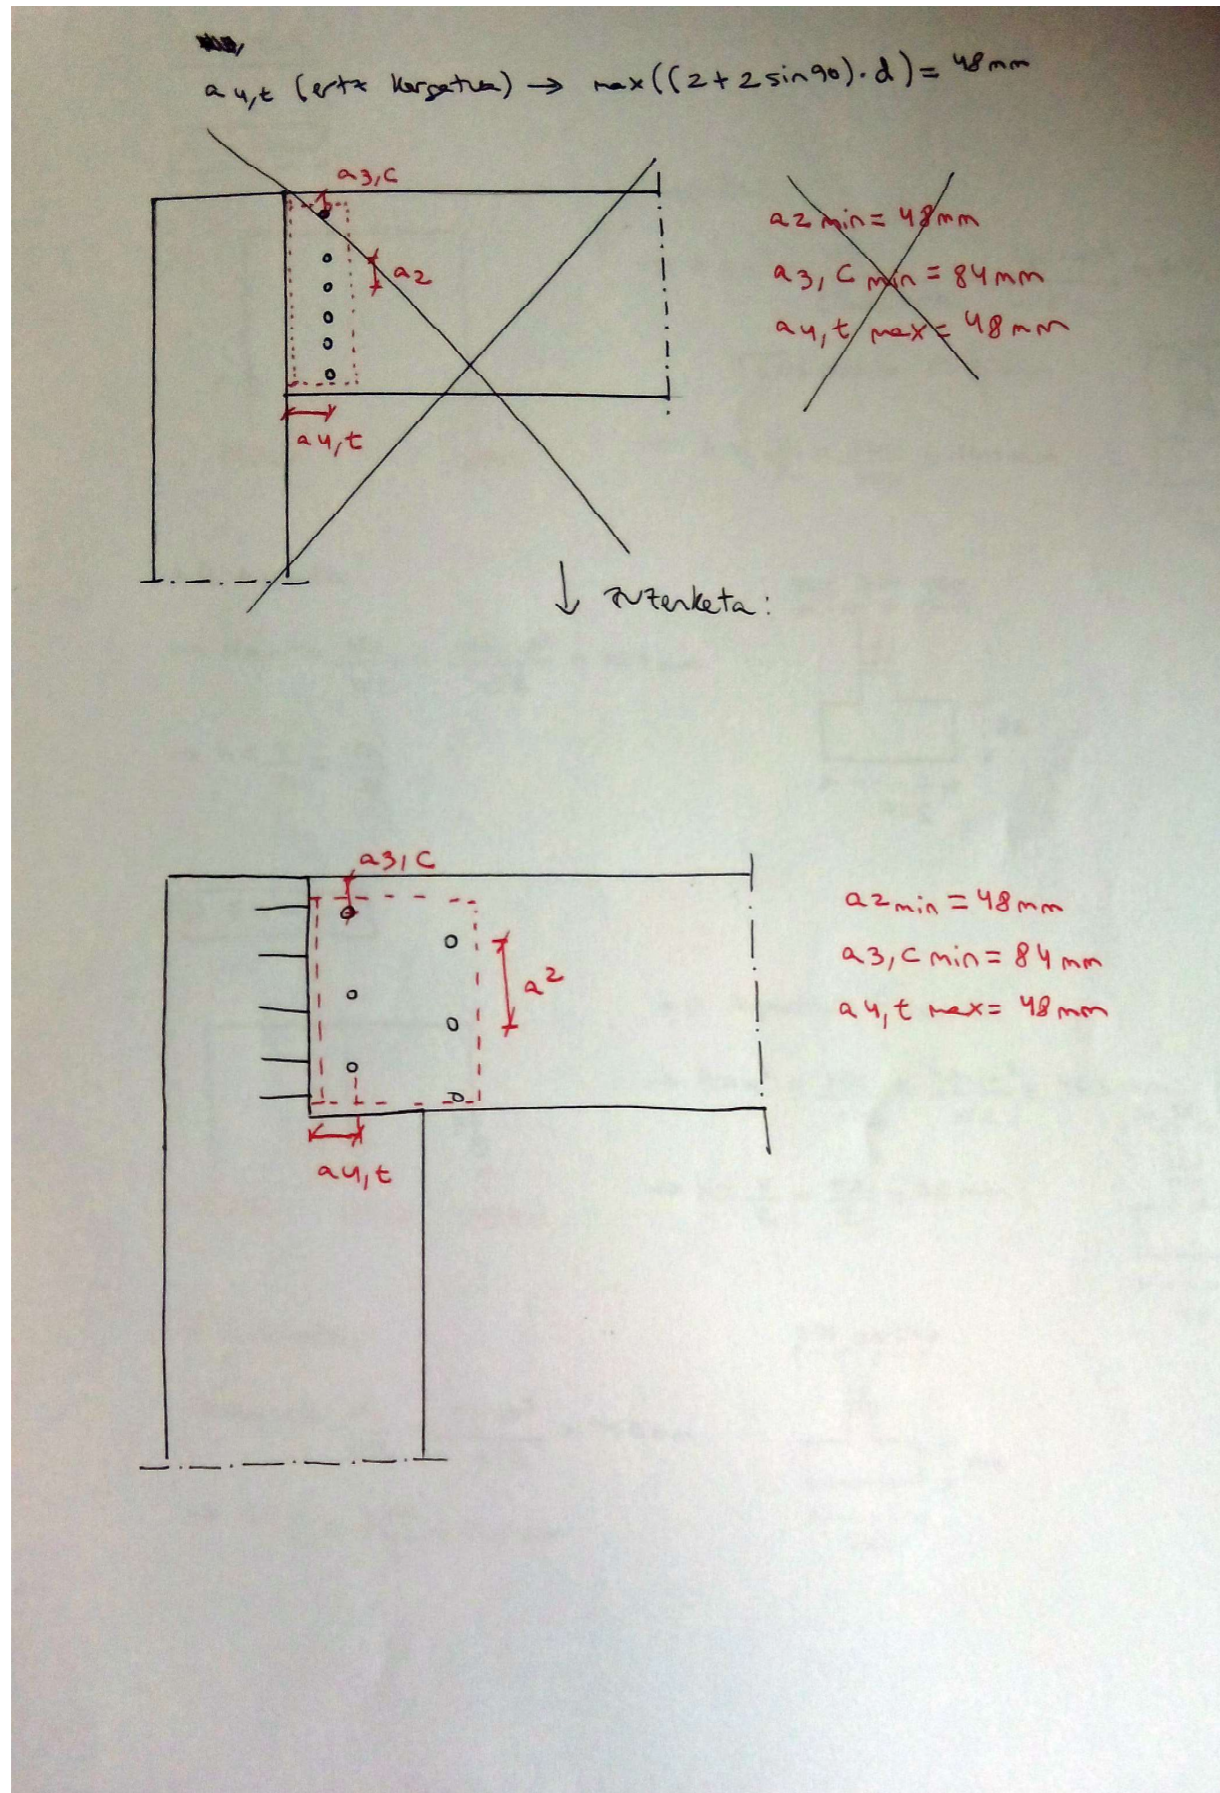 a4,t (ertz kargatua) → max((2+2sin90)·d)= 48mm
a3,c
a2
a4,t
a2 min = 48mm
a3,c min = 84mm
a4,t max = 48mm
↓ zuzenketa:
a3,c
a2
a4,t
a2 min = 48mm
a3,c min = 84mm
a4,t max = 48mm